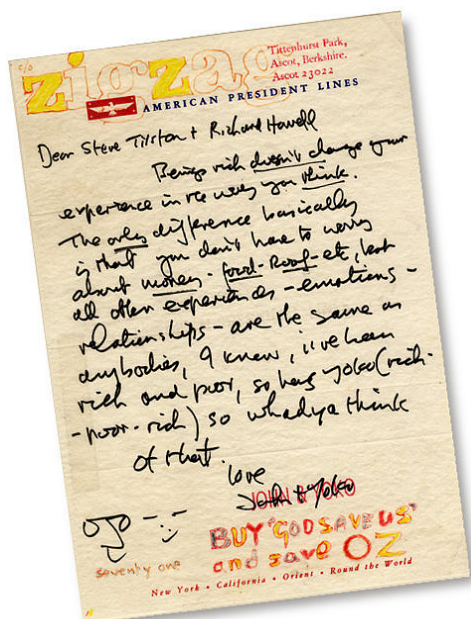 c/o
zigzag
Tittenhurst Park,
Ascot, Berkshire.
Ascot 23022
AMERICAN PRESIDENT LINES
Dear Steve Tilston + Richard Howell
Being rich doesn't change your
experience in the way you think.
The only difference basically
is that you don't have to worry
about money - food - Roof - etc, but
all other experiences - emotions -
relationships - are the same as
anybodies, I know, i've been
rich and poor, so has yoko (rich-
-poor-rich) so whadya think
of that.
love
John + Yoko
JOHN & YOKO
seventy one
BUY 'GOD SAVE US'
and save OZ
New York • California • Orient • Round the World